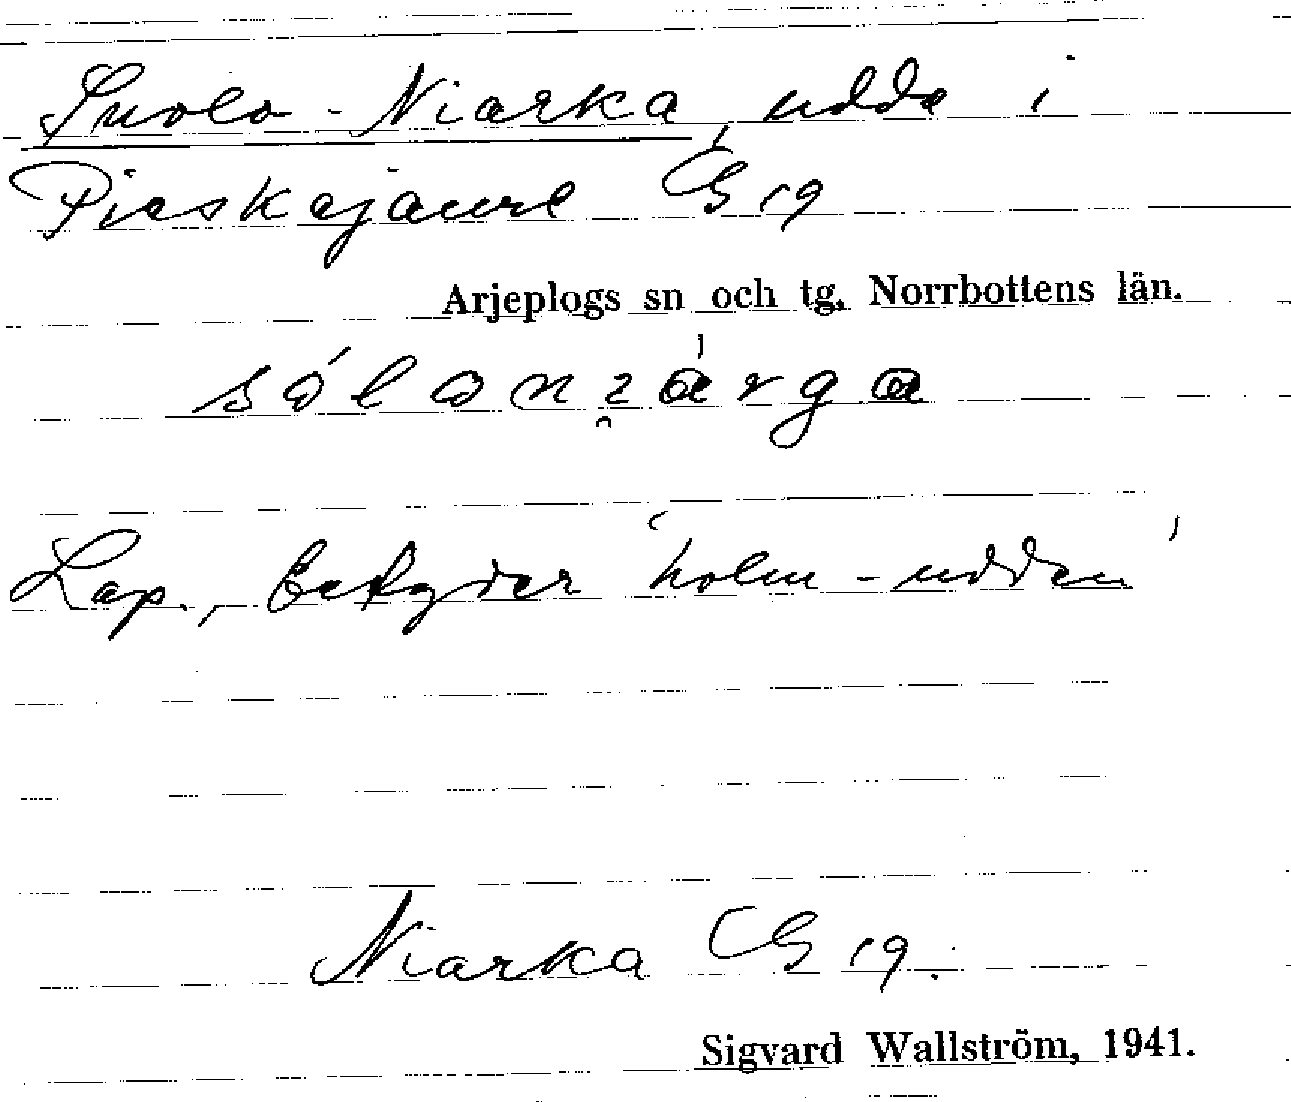 Suolo-Niarka, udde i
Pieskejaure G 19
Arjeplogs sn och tg. Norrbottens län.
Lap., betyder 'holm-udden'
Niarka G 19.
Sigvard Wallström, 1941.